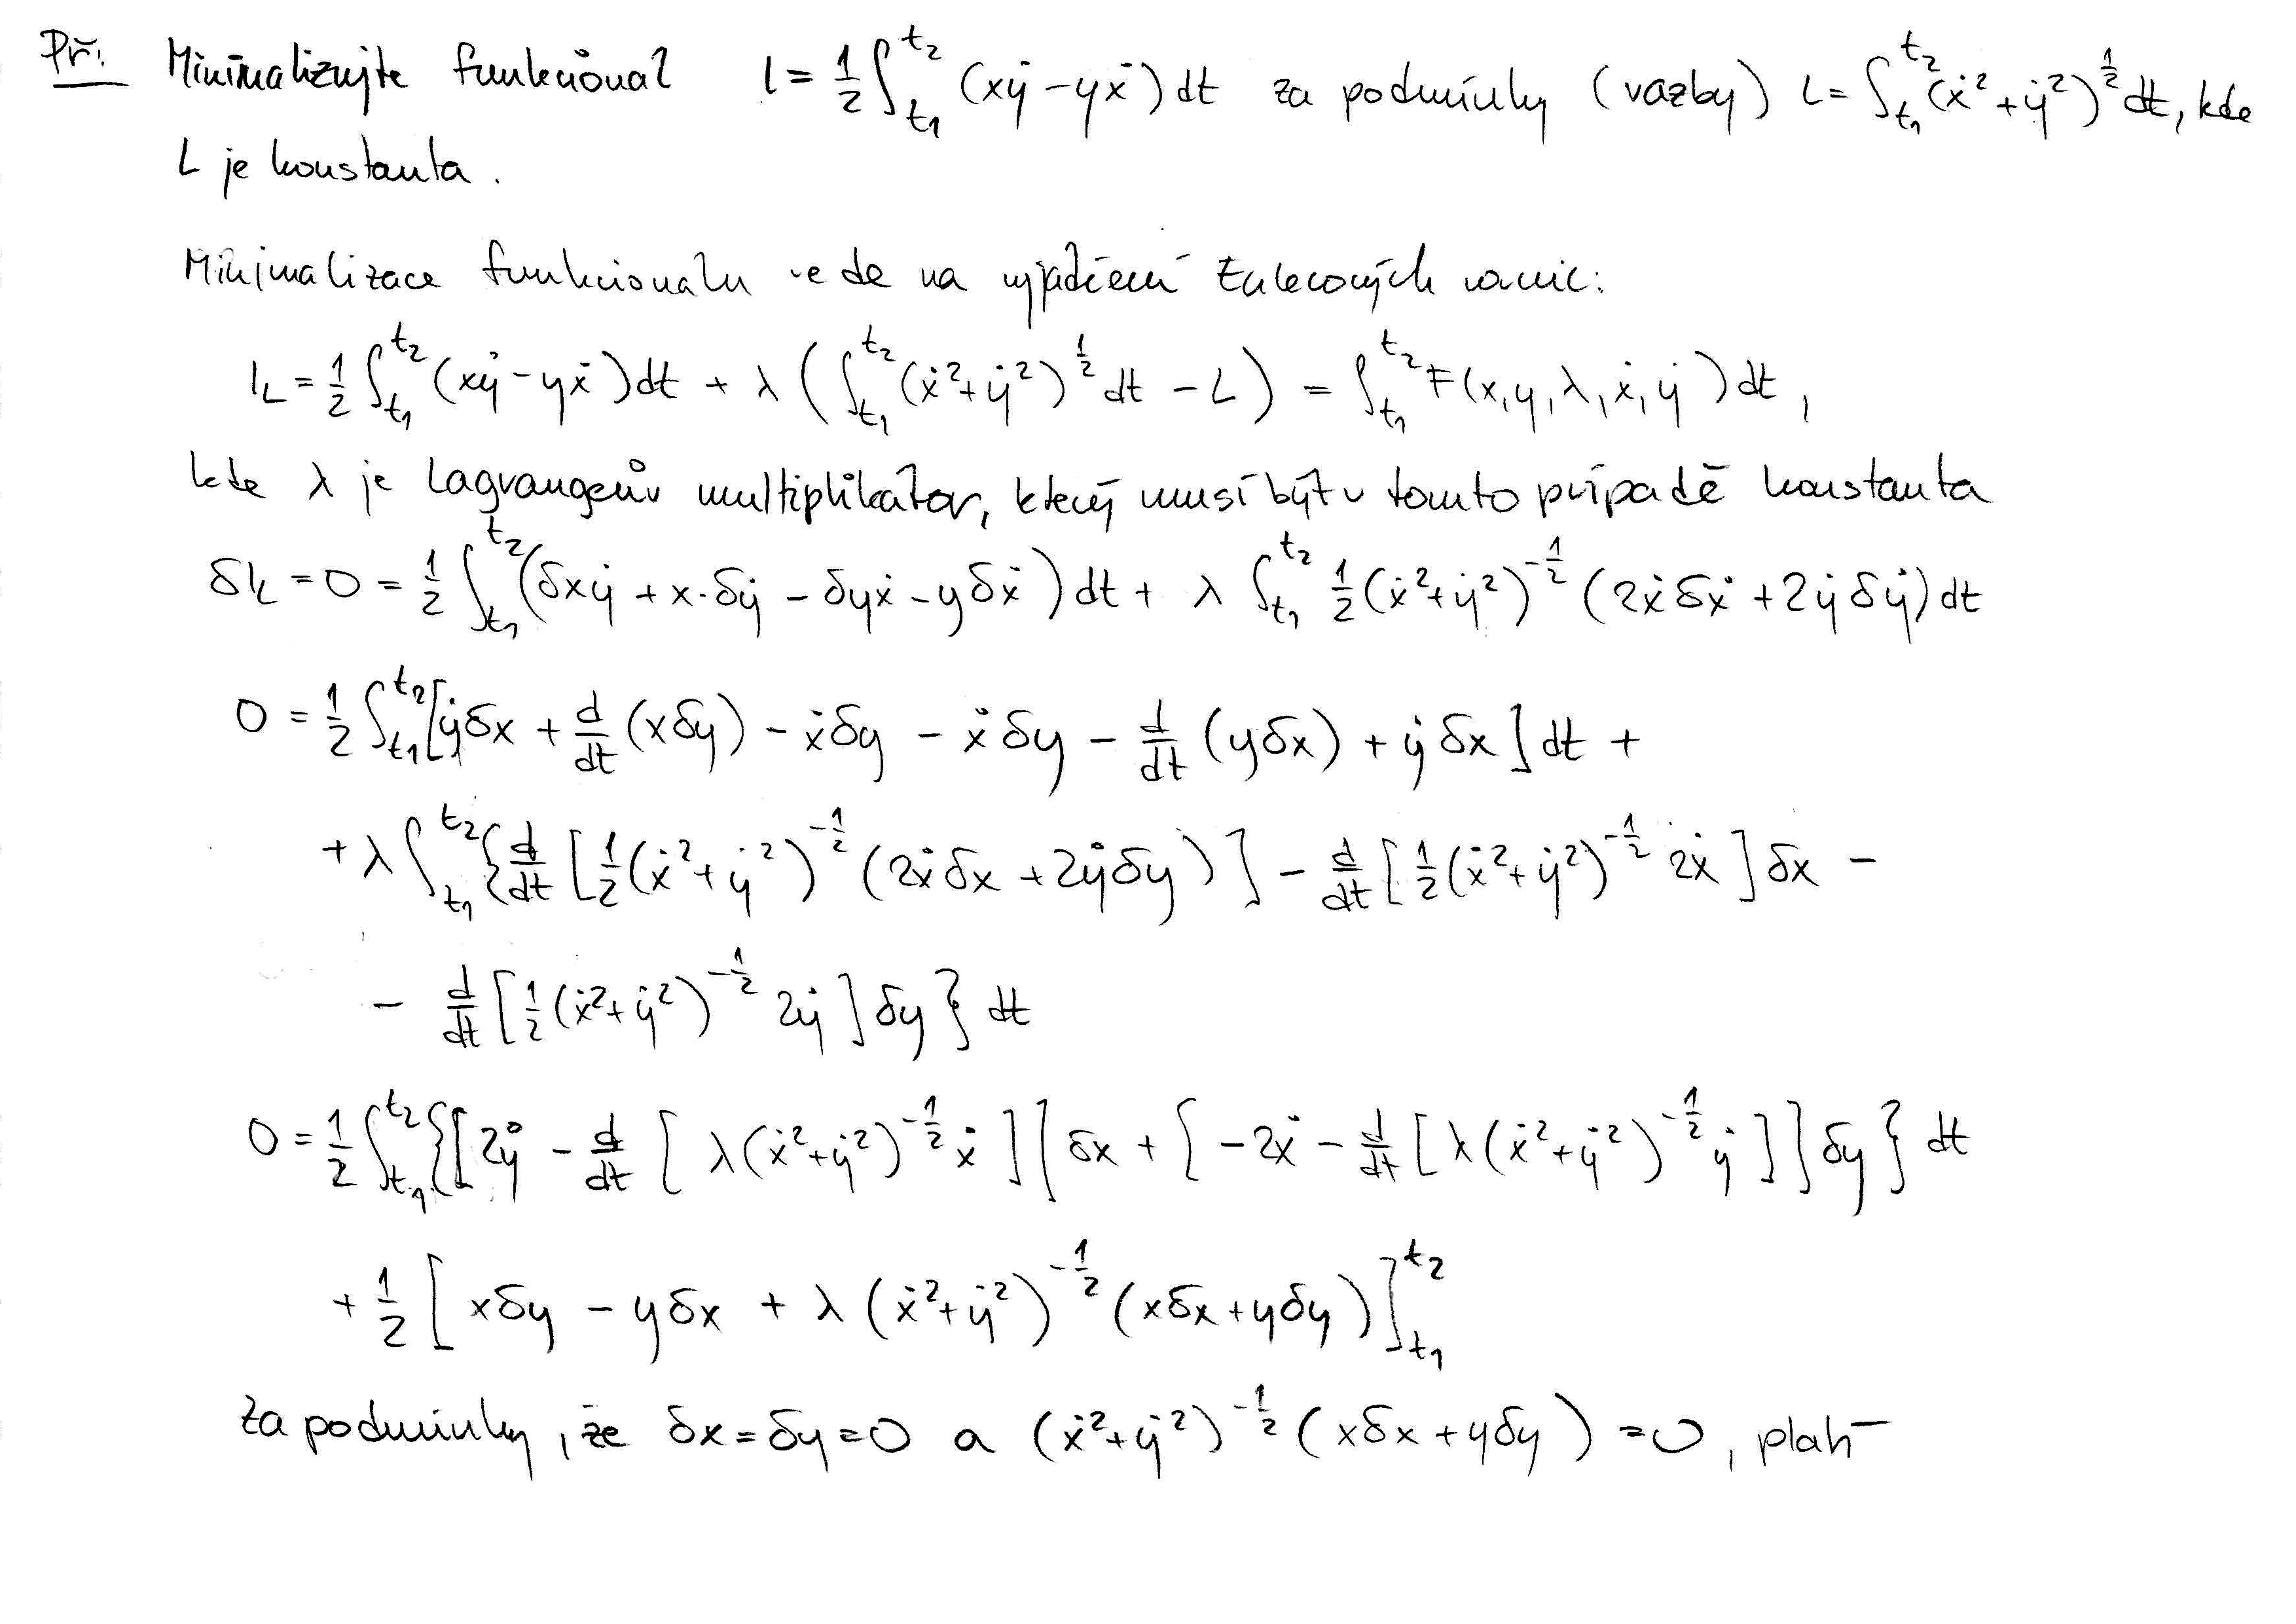 Př. Minimalizujte funkcionál I = 1/2 ∫_{t1}^{t2} (xẏ - yẋ) dt za podmínky (vazby) L = ∫_{t1}^{t2} (ẋ² + ẏ²)^{1/2} dt, kde
L je konstanta.
Minimalizace funkcionálu vede na vyjádření Eulerových rovnic:
I_L = 1/2 ∫_{t1}^{t2} (xẏ - yẋ) dt + λ ( ∫_{t1}^{t2} (ẋ² + ẏ²)^{1/2} dt - L ) = ∫_{t1}^{t2} F(x, y, λ, ẋ, ẏ) dt,
kde λ je Lagrangeův multiplikátor, který musí být v tomto případě konstanta
δI_L = 0 = 1/2 ∫_{t1}^{t2} (δxẏ + x·δẏ - δyẋ - yδẋ) dt + λ ∫_{t1}^{t2} 1/2 (ẋ² + ẏ²)^{-1/2} (2ẋδẋ + 2ẏδẏ) dt
0 = 1/2 ∫_{t1}^{t2} [ẏδx + d/dt (xδy) - ẋδy - ẋδy - d/dt (yδx) + ẏδx] dt +
+ λ ∫_{t1}^{t2} { d/dt [1/2 (ẋ² + ẏ²)^{-1/2} (2ẋδx + 2ẏδy)] - d/dt [1/2 (ẋ² + ẏ²)^{-1/2} 2ẋ] δx -
- d/dt [1/2 (ẋ² + ẏ²)^{-1/2} 2ẏ] δy } dt
0 = 1/2 ∫_{t1}^{t2} {[2ẏ - d/dt [λ(ẋ² + ẏ²)^{-1/2} ẋ]] δx + [-2ẋ - d/dt [λ(ẋ² + ẏ²)^{-1/2} ẏ]] δy} dt
+ 1/2 [xδy - yδx + λ (ẋ² + ẏ²)^{-1/2} (xδx + yδy)]_{t1}^{t2}
Za podmínky, že δx = δy = 0 a (ẋ² + ẏ²)^{-1/2} (xδx + yδy) = 0, platí